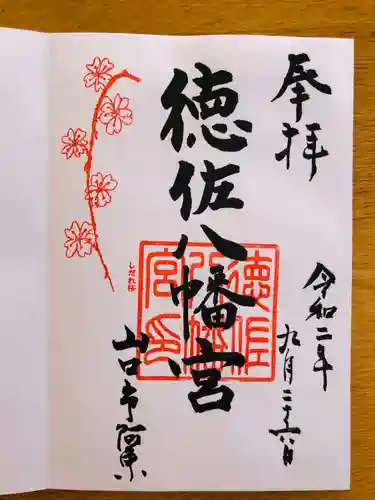 奉拝
令和二年
九月二十六日
徳佐八幡宮
徳佐八幡宮印
山口市阿東
しだれ桜